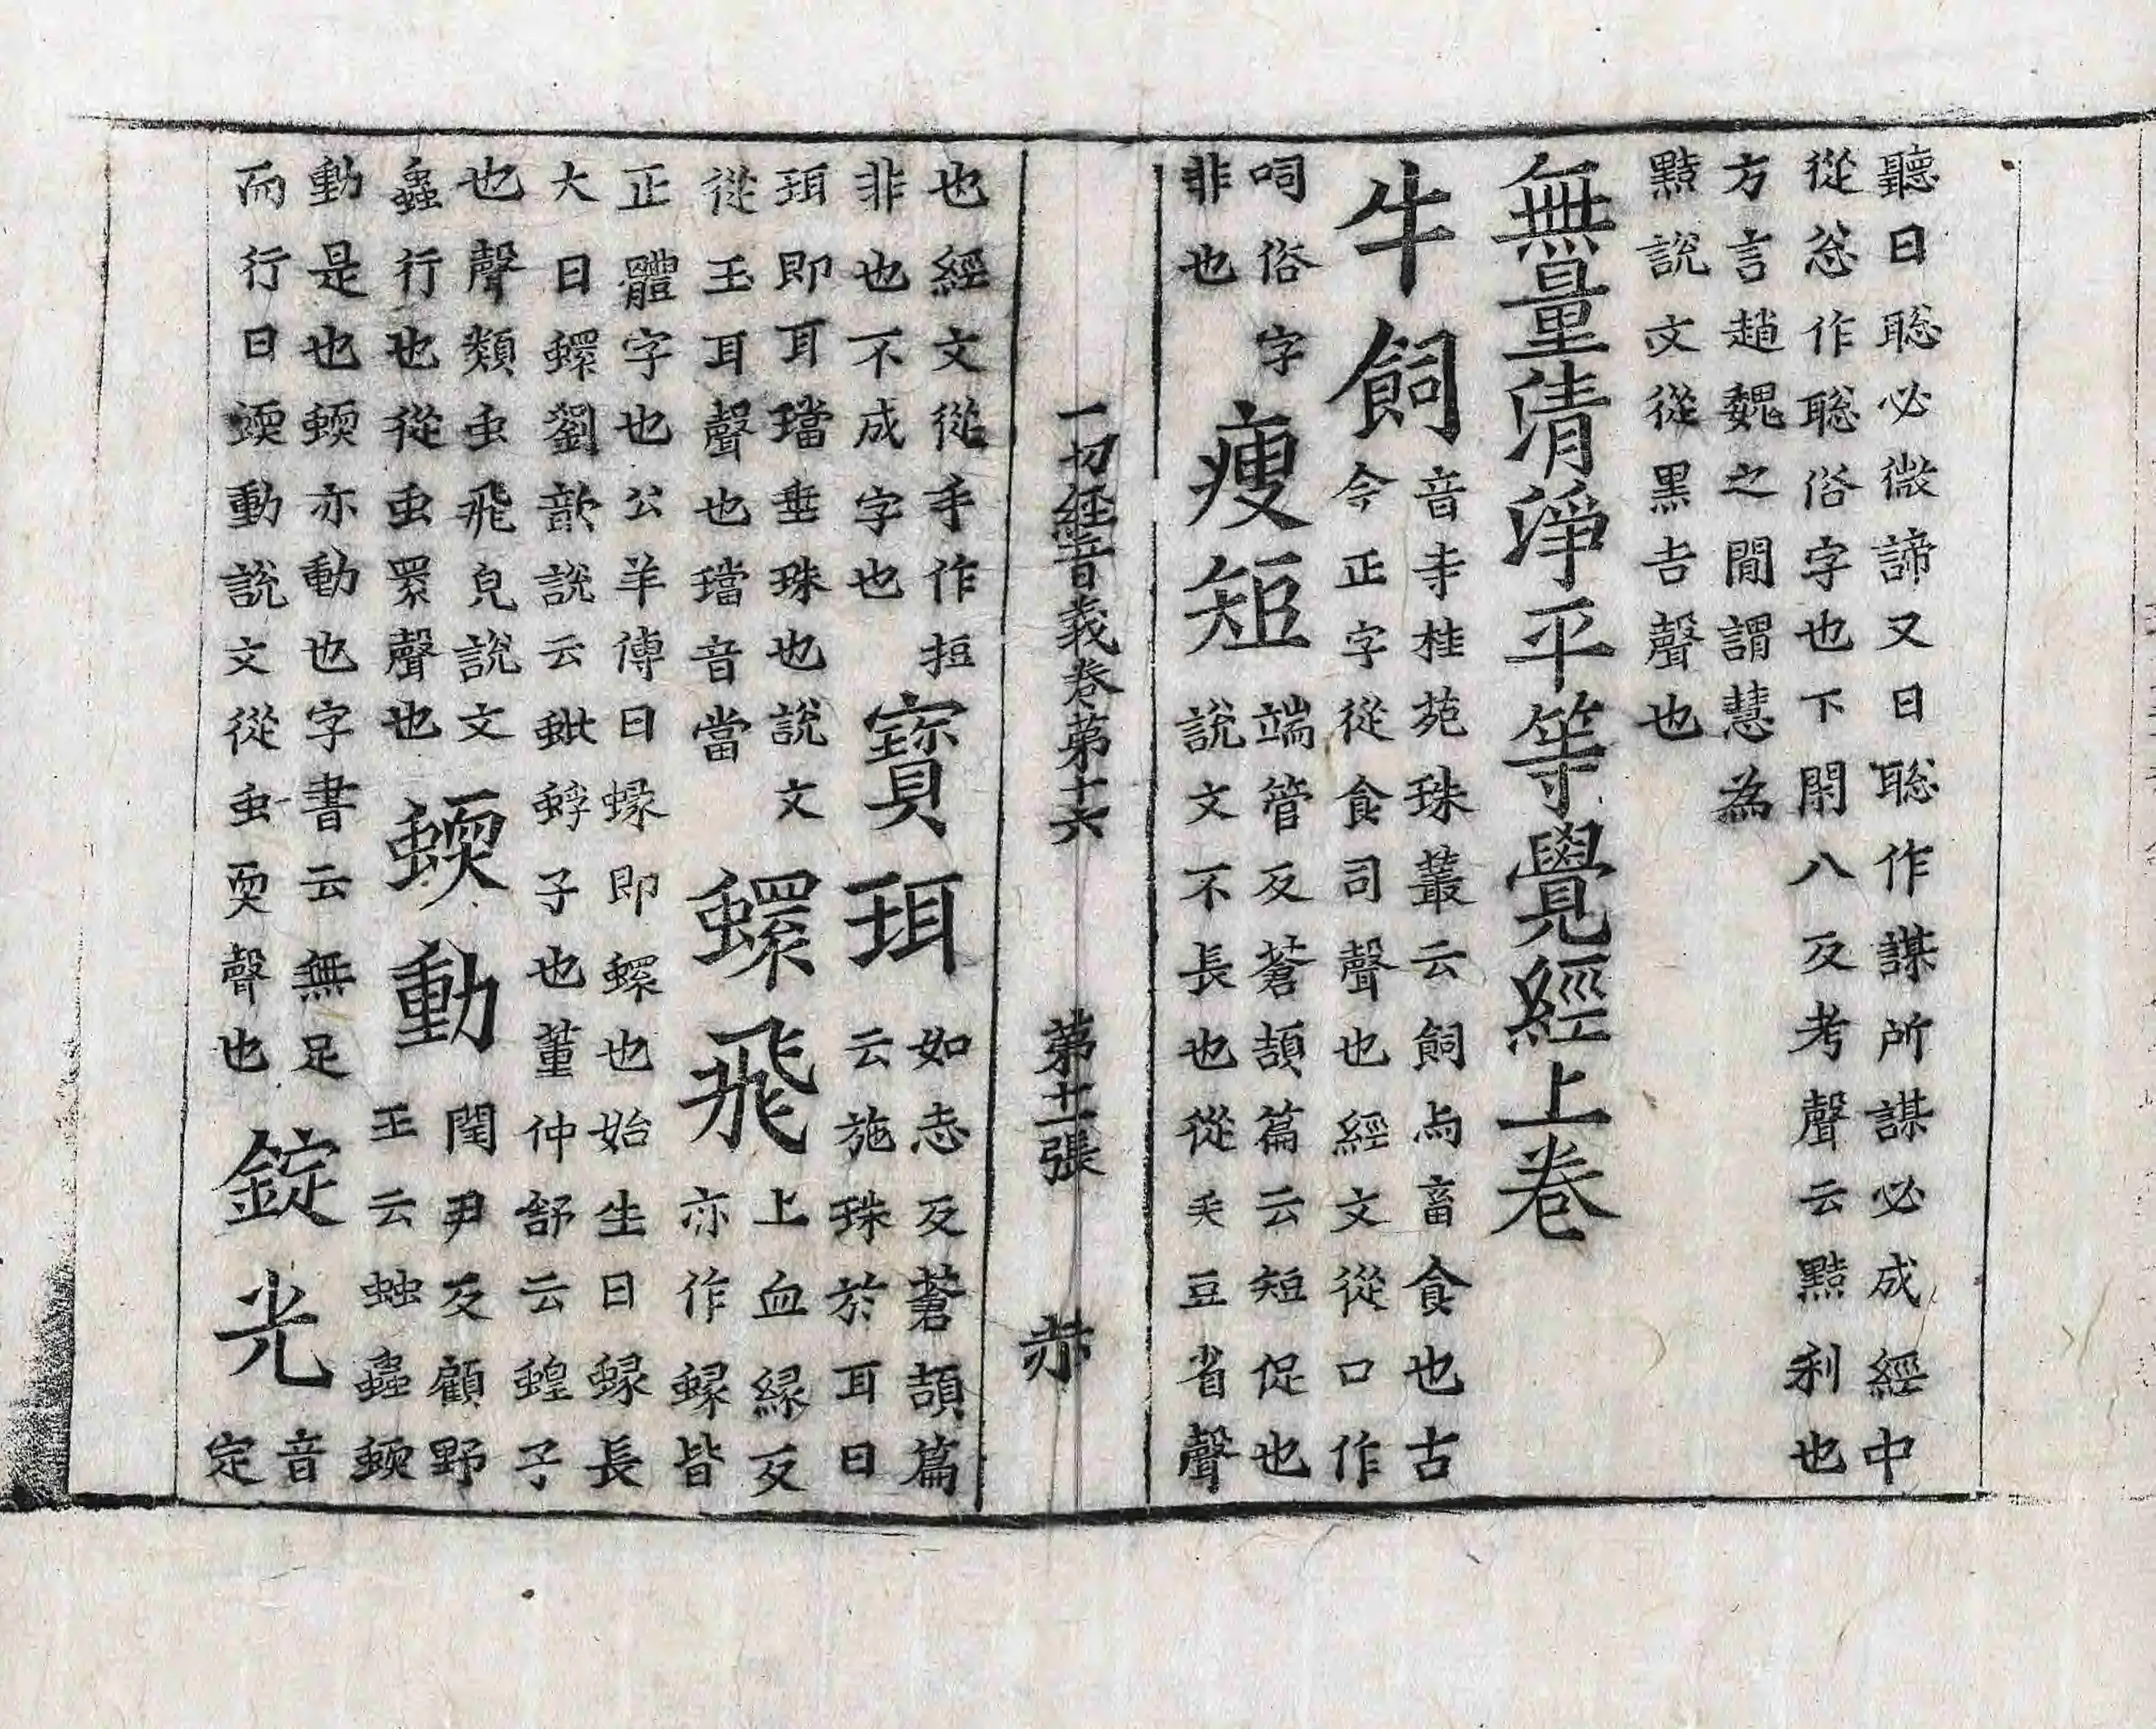 聽曰聡必微諦又曰聡作謀所謀必成經中
從忩作聡俗字也下閑八反考聲云黠利也
方言趙魏之閒謂慧為
黠說文從黒吉聲也
無量清淨平等覺經上卷
牛飼
音寺桂苑珠叢云飼与畜食也古
今正字從食司聲也經文從口作
呞俗字
非也
瘦短
端管反蒼頡篇云短促也
說文不長也從矢豆省聲
一切經音義卷第十六 第十二張 赤
也經文從手作挋
非也不成字也
寶珥
如志反蒼頡篇
云施珠於耳曰
珥即耳璫垂珠也說文
從玉耳聲也璫音當
蠉飛
上血緣反
亦作蝝皆
正體字也公羊傳曰蝝即蠉也始生曰蝝長
大曰蠉劉歆說云蚍蜉子也董仲舒云蝗子
也聲類虫飛皃說文
蟲行也從虫睘聲也
蝡動
閏尹反顧野
王云蚰蟲蝡
動是也蝡亦動也字書云無足
而行曰蝡動說文從虫耎聲也
錠光
音
定